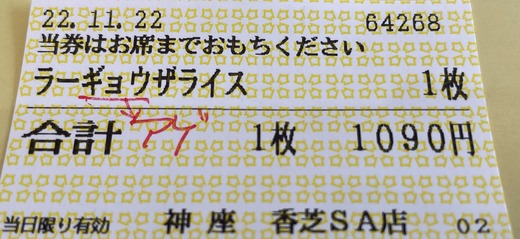 22.11.22 64268
当券はお席までおもちください
ラーギョウザライス 1枚
合計 アゲ 1枚 1090円
当日限り有効 神座 香芝SA店 02